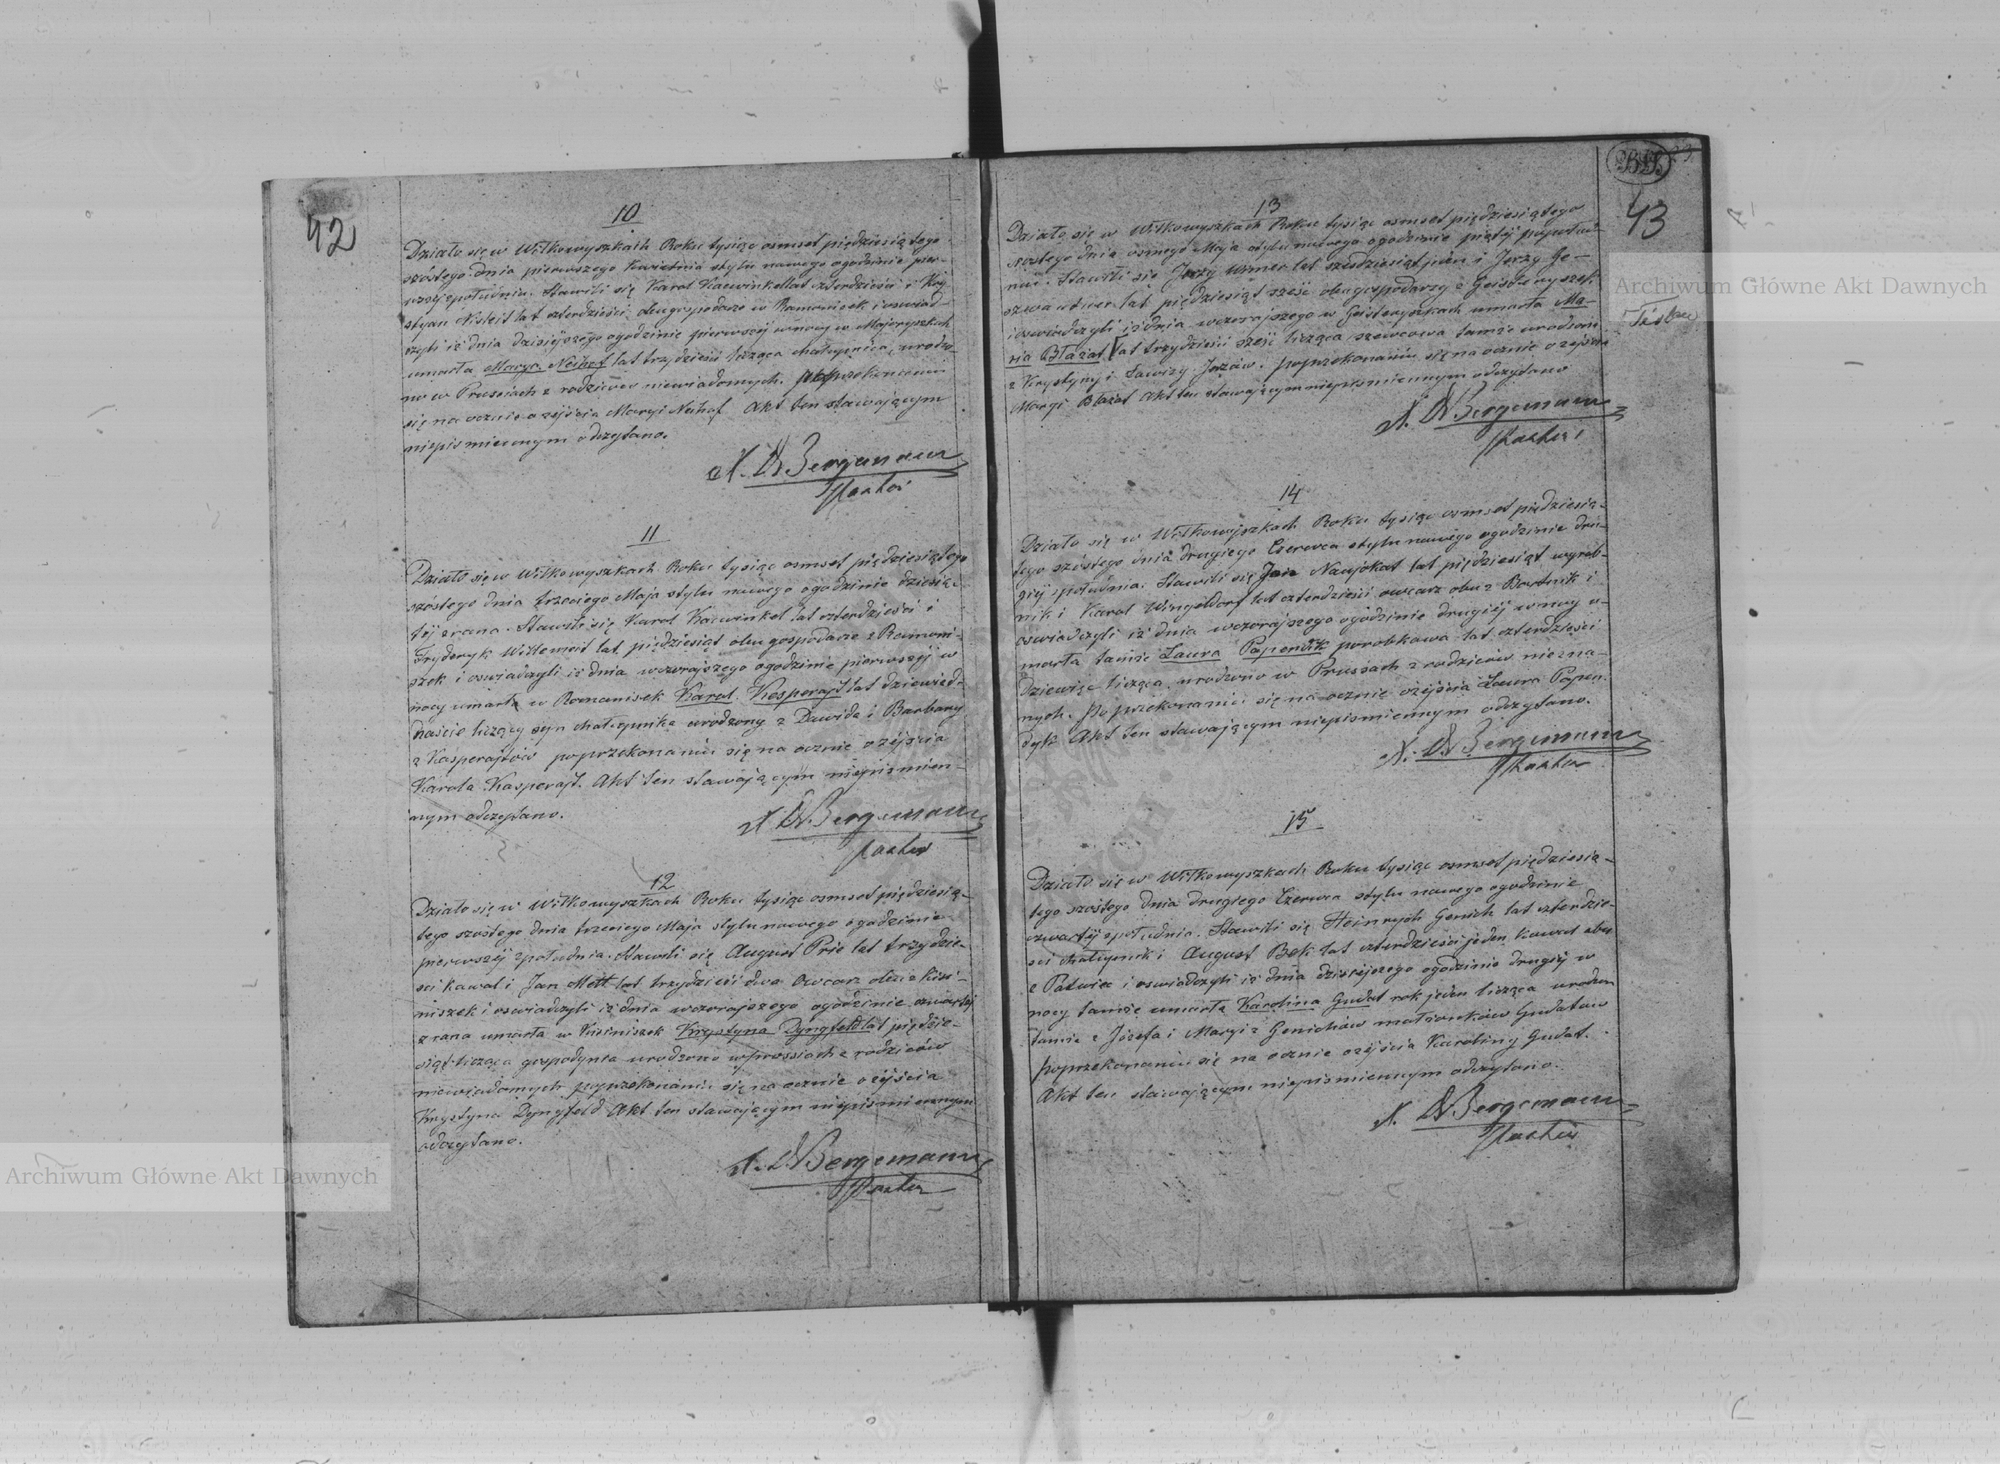 42
10
Działo się w Wiłkowyszkach Roku tysiąc osmset piędziesiątego
szóstego dnia pierwszego Kwietnia stylu nowego ogodzinie pier-
wszej zpołudnia. Stawili się Karol Kaewinkel lat czterdzieści i Kry-
styan Nikleit lat czterdzieści obu gospodarze w Ramoniszek i oswiad-
czyli iż dnia dzisiejszego ogodzinie pierwszej wnocy w Majoryszkach
umarła Marya Neihof lat trzydzieści licząca chałupnica, urodzo-
no w Prusiach z rodziców niewiadomych. po przekonaniu
się na ocznie o zejściu Maryi Neihof Akt ten stawającym
niepismiennym odczytano.
A. W. Bergemann
Pastor
11
Działo się w Wiłkowyszkach Roku tysiąc osmset pięździesiątego
szóstego dnia trzeciego Maja stylu nowego ogodzinie dziesią-
téj zrana. Stawili się Karol Kaewinkel lat czterdzieści i
Fryderyk Willemeit lat pięździesiąt obu gospodarze z Ramoni-
szek i oswiadczyli iż dnia wczorajszego ogodzinie pierwszéj w
nocy umarł w Romaniszek Karol Kasperajt lat dziewięd-
naście liczący syn chałupnika urodzony z Dawida i Barbary
z Kasperajtów poprzekonaniu się na ocznie ozejściu
Karola Kasperajt. Akt ten stawającym niepismien-
nym odczytano.
A. W. Bergemann
Pastor
12
Działo się w Wiłkowyszkach Roku tysiąc osmset pięździesią-
tego szóstego dnia trzeciego Maja stylu nowego ogodzinie
pierwszéj zpołudnia. Stawili się August Prie lat trzydzie-
sci kawal i Jan Mett lat trzydzieści dwa Owcarz obu z Kisi-
niszek i oswiadczyli iż dnia wczorajszego ogodzinie czwartéj
z rana umarła w Kisiniszek Krystyna Dyngfeld lat pięździe-
siąt licząca gospodynia urodzono wprussiach z rodziców
niewiadomych poprzekonaniu się na ocznie ozejściu
Krystyna Dyngfeld Akt ten stawającym niepismiennym
odczytano.
A. W. Bergemann
Pastor
43
13
Działo się w Wiłkowyszkach Roku tysiąc osmset pięździesiątego
szóstego dnia osmego Maja stylu nowego ogodzinie piątéj popołud-
niu. Stawili się Jerzy Wilmer lat sześdziesiąt i Jerzy Ge-
lat pięździesiąt sześć obu gospodarzy z Geisteryszek
i oswiadczyli iż dnia wczorajszego w Geisteryszkach umarła Ma-
ria Błażat lat trzydzieści sześć licząca szewcowa tamże urodzona
z Krystyny i Ławizy Jozów. poprzekonaniu się na ocznie o zejściu
Maryi Błażat Akt ten stawającym niepismiennym odczytano
A. W. Bergemann
Pastor
14
Działo się w Wiłkowyszkach Roku tysiąc osmset pięździesią-
tego szóstego dnia drugiego Czerwca stylu nowego ogodzinie dru-
giéj zpołudnia. Stawili się Jan Naujokat lat pięździesiąt wyrob-
nik i Karol Wingeldorf lat czterdzieści owcarz obu z Bartnik i
oswiadczyli iż dnia wczorajszego ogodzinie drugiéj wnocy u-
marła tamże Laura Papendik parobkowa lat czterdzieści
dziewięć licząca, urodzono w Prussach z rodziców niezna-
nych. Po przekonaniu się na ocznie ozejściu Laura Papen-
dyk Akt ten stawającym niepismiennym odczytano.
A. W. Bergemann
Pastor
15
Działo się w Wiłkowyszkach Roku tysiąc osmset pięździesią-
tego szóstego dnia drugiego Czerwca stylu nowego ogodzinie
czwartéj zpołudnia. Stawili się Heinrych Genich lat czterdzie-
sci chałupnik i August Bek lat czterdzieści jeden kawal obu
z Patwiec i oswiadczyli iż dnia dzisiejszego ogodzinie drugiéj w
nocy tamże umarła Karolina Gudat rok jeden licząca urodzon
tamże z Józefa i Maryi z Genichów małżonków Gudatow
poprzekonaniu się na ocznie ozejściu Karoliny Gudat.
Akt ten stawającym niepismiennym odczytano.
A. W. Bergemann
Pastor
Archiwum Główne Akt Dawnych
Archiwum Główne Akt Dawnych